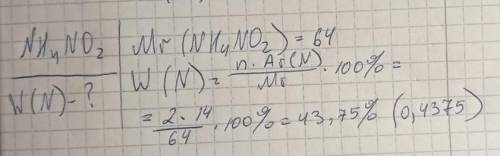 NH₄NO₂
Mr (NH₄NO₂) = 64
W(N) - ?
W (N) = n · Ar(N) / Mr · 100% =
= 2 · 14 / 64 · 100% = 43,75% (0,4375)